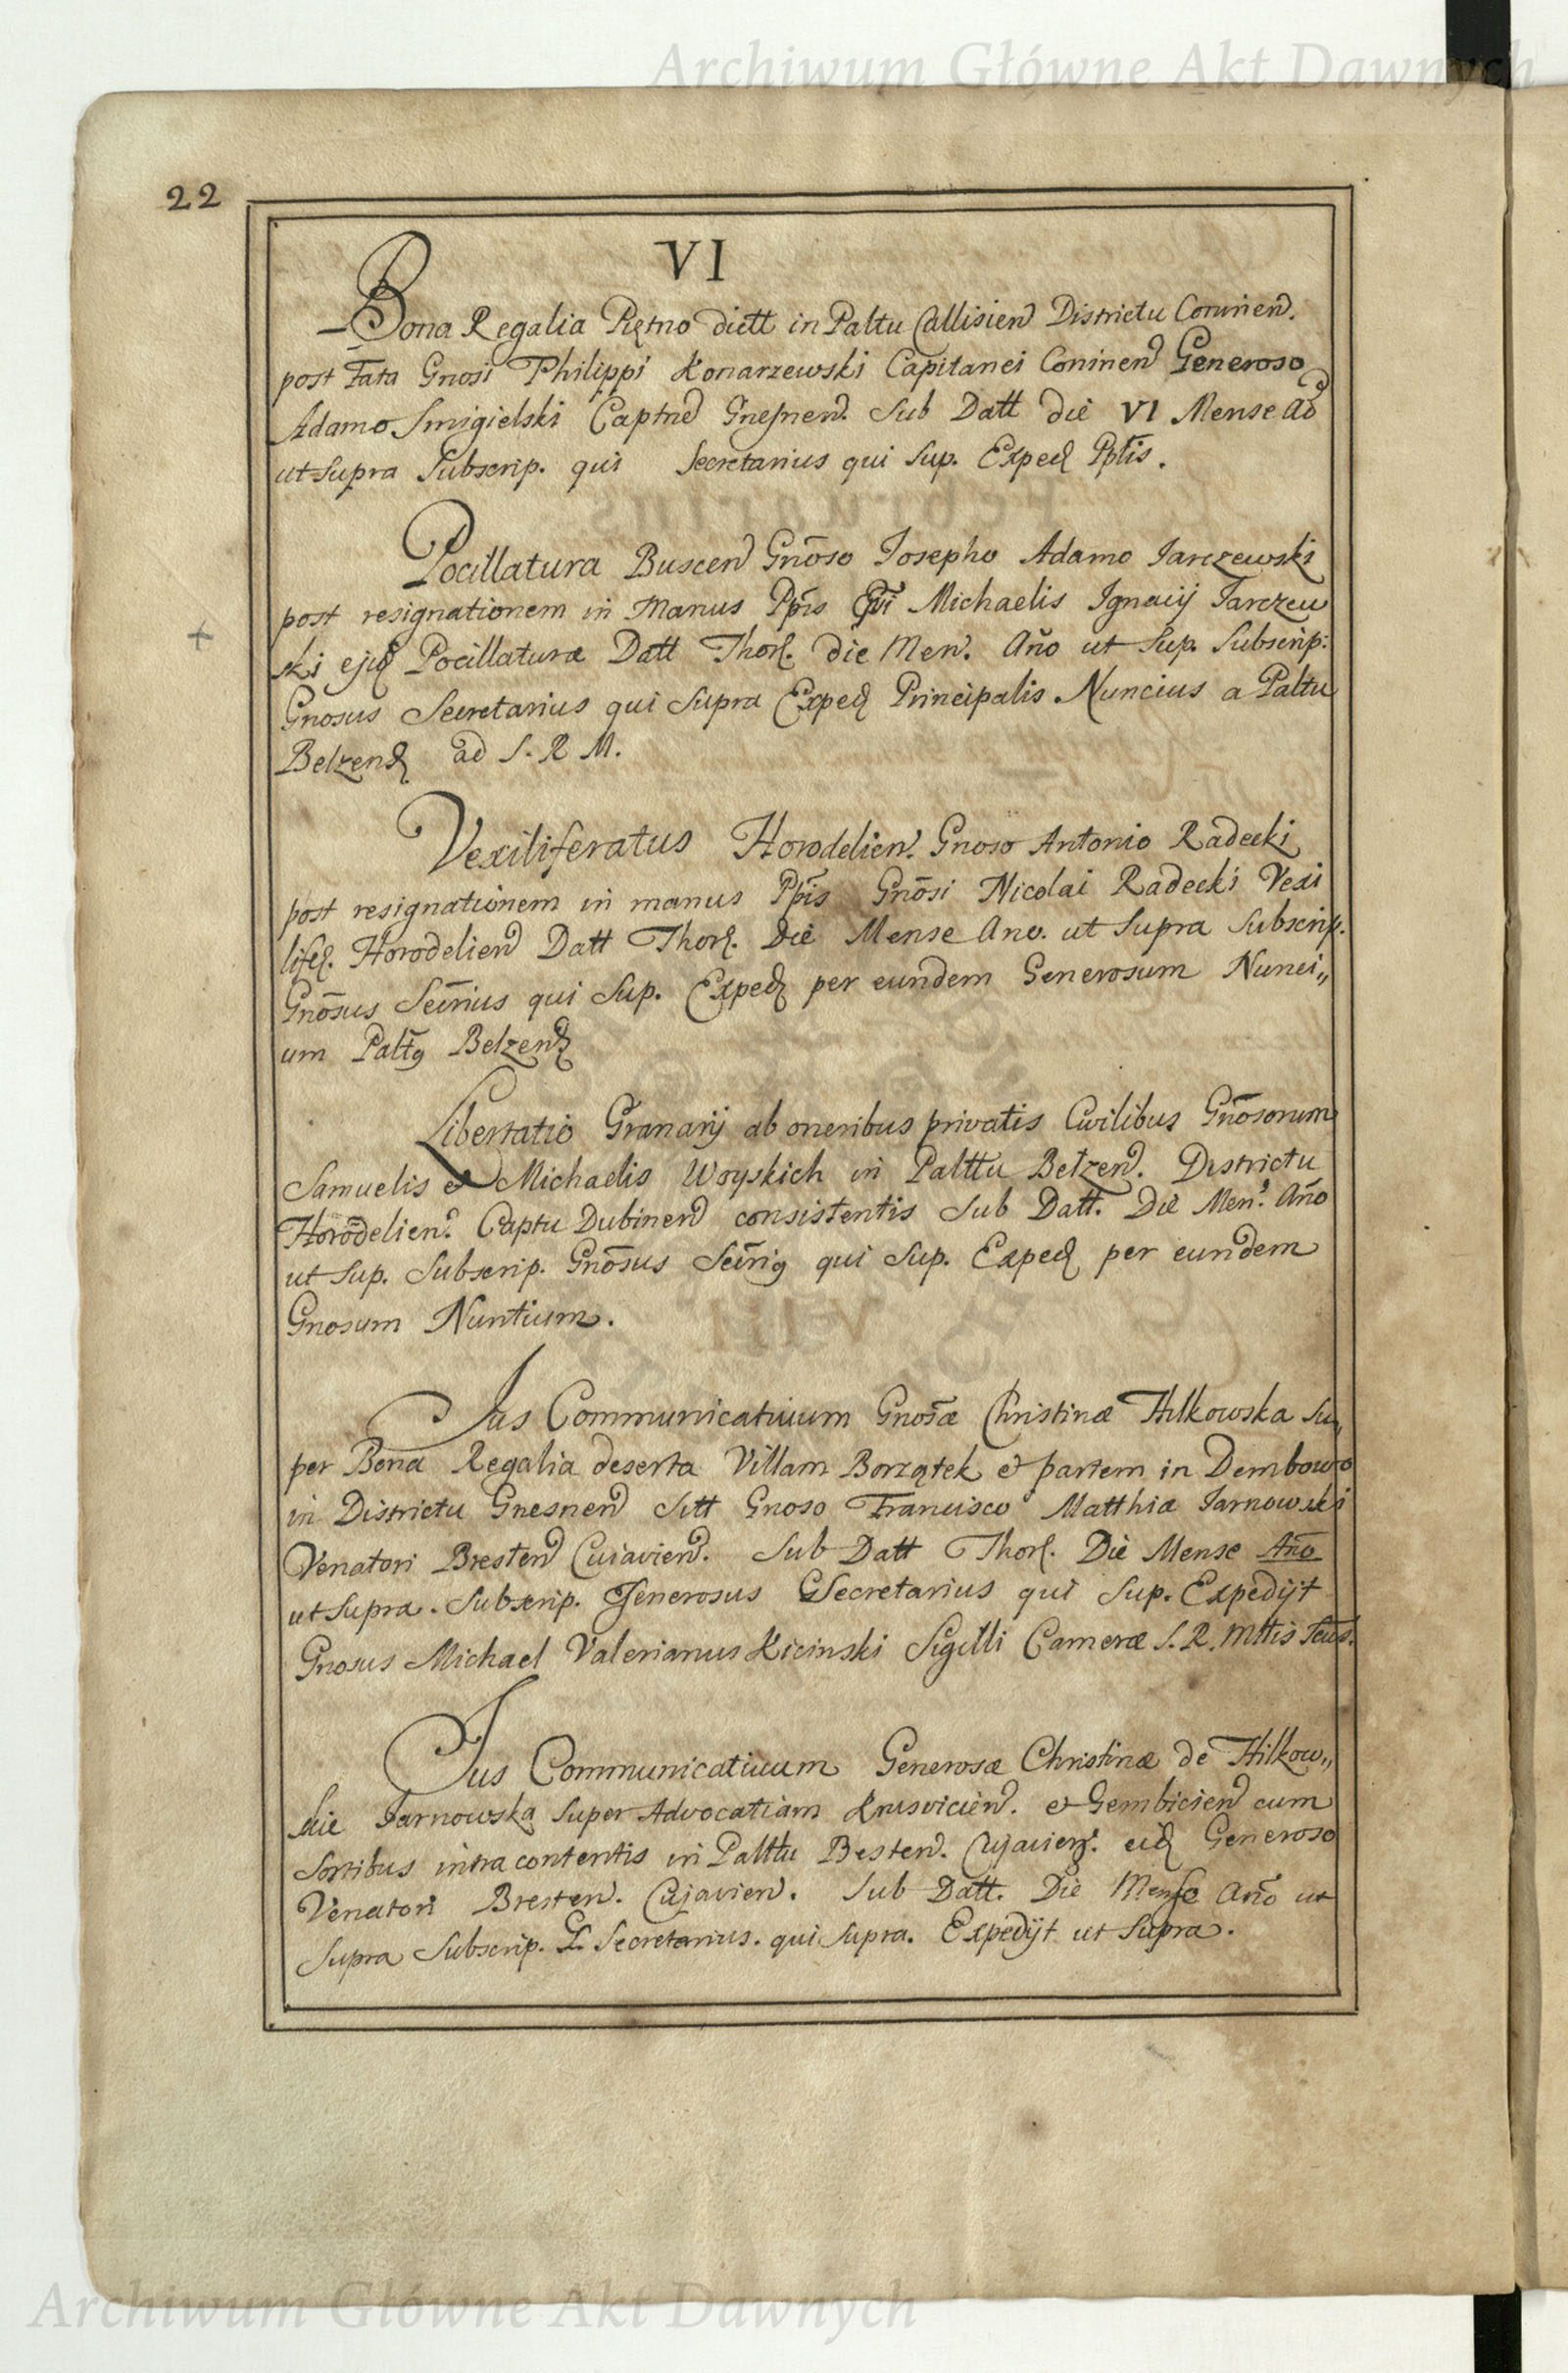 Archiwum Główne Akt Dawnych
22
VI
Bona Regalia Piętno dictt in Paltu Callisien Districtu Coninen.
post Fata Gnosi Philippi Konarzewski Capitanei Coninen Generoso
Adamo Smigielski Captneo Gnesnen. Sub Datt die VI Mense Ao
ut supra Subscrip. qui Secretarius qui Sup. Exped Pptis.
Pocillatura Buscen Gnōso Josepho Adamo Jarczewski
post resignationem in Manus Ppīs Gnī Michaelis Ignaiij Jarczew
+
ski ejusd Pocillaturæ Datt Thor. die Men. Año ut Sup. Subscrip:
Gnosus Secretarius qui Supra Exped Principalis Nuncius a Paltu
Belzens ad S. R M.
Vexiliferatus Horodelien. Gnoso Antonio Radecki
post resignationem in manus Ppīs Gnōsi Nicolai Radecki Vexi
life. Horodelien Datt Thor. Die Mense Ano. ut Supra Subscrip.
Gnōsus Secrīus qui Sup. Exped per eundem Generosum Nunci,,
um Palt9 Belzens
Libertatio Granarij ab oneribus privatis Civilibus Gnōsorum
Samuelis et Michaelis Woyskich in Palttu Belzen. Districtu
Horodelien. Captu Dubinen consistentis Sub Datt. Die Men. Año
ut Sup. Subscrip. Gnōsus Secrī9 qui Sup. Exped per eundem
Gnosum Nuntium.
Jus Communicativum Gnosæ Christinæ Thlkowska Su,,
per Bona Regalia deserta Villam Borzątek et partem in Dembowo
in Districtu Gnesnen Sitt Gnoso Francisco Matthia Jarnowski
Venatori Bresten Cuiavien. Sub Datt Thor. Die Mense Año
ut Supra. Subscrip. Generosus Secretarius qui Sup. Expedijt
Gnosus Michael Valerianus Kicinski Sigilli Cameræ S. R. Mttis Secrs.
Jus Communicativum Generosæ Christinæ de Thlkow,,
skie Jarnowska Super Advocatiam Krusvicien. et Gembicien cum
Sortibus intra contentis in Palttu Besten. Cujavien. eid Generoso
Venatori Bresten. Cujavien. Sub Datt. Die Mense Año ut
Supra Subscrip. G. Secretarius. qui Supra. Expedijt ut Supra.
Archiwum Główne Akt Dawnych